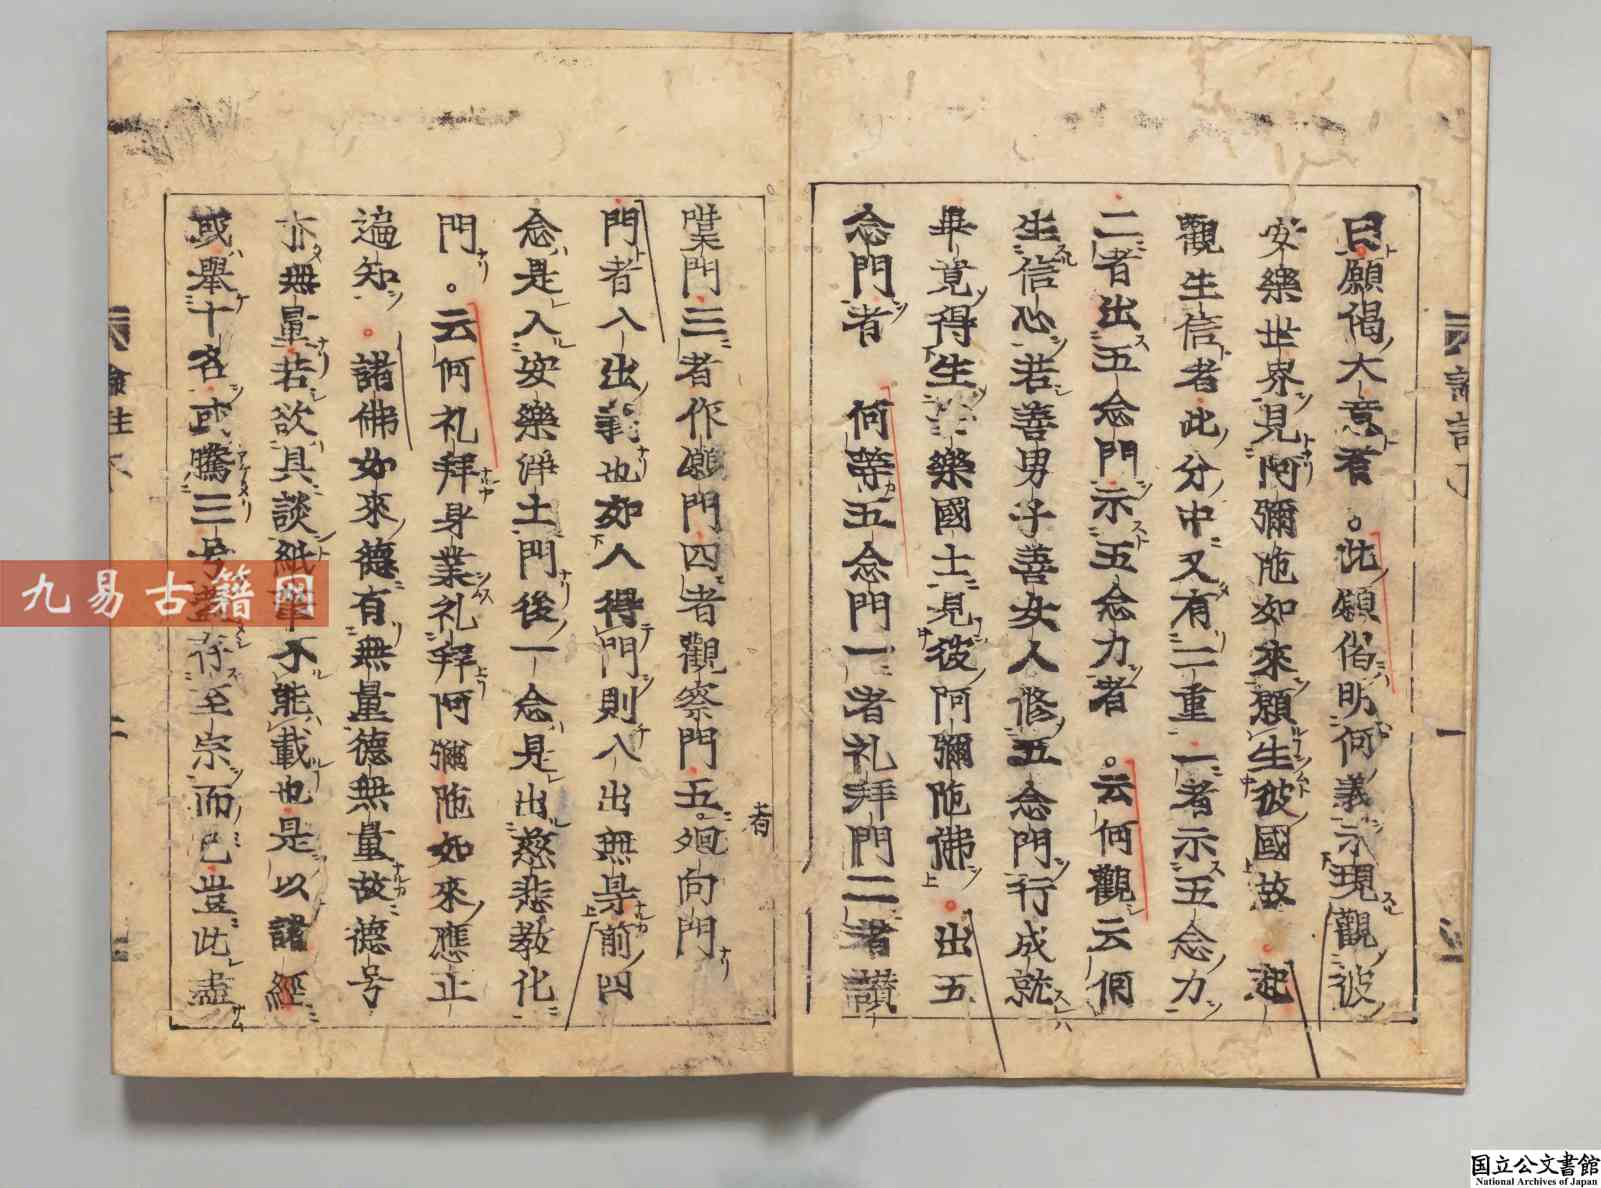 曰願偈大意者。此願偈明何義示現觀彼
安樂世界見阿彌陀如來願生彼國故。起
觀生信者此分中又有二重一者示五念力
二者出五念門示五念力者。云何觀云何
生信心若善男子善女人修五念門行成就
畢竟得生安樂國土見彼阿彌陀佛。出五
念門者 何等五念門一者礼拜門二者讃
嘆門三者作願門四者觀察門五。廻向門
者
門者入出義也如人得門則入出無㝵前四
念是入安樂淨土門後一念是出慈悲教化
門。云何礼拜身業礼拜阿彌陀如來應正
遍知。諸佛如來德有無量德無量故德号
亦無量若欲具談紙筆不能載也是以諸經
或舉十名或騰三号盖存至宗而已豈此盡
九易古籍网
国立公文書館
National Archives of Japan